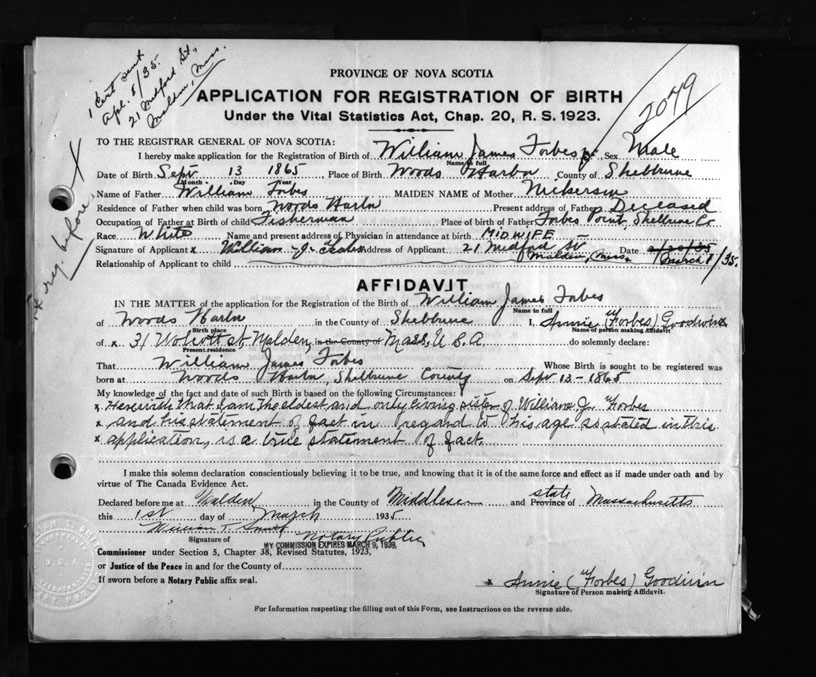 1 Cert sent
Apl. 8/35.
21 Medford St.,
Malden, Mass.
PROVINCE OF NOVA SCOTIA
2079
APPLICATION FOR REGISTRATION OF BIRTH
Under the Vital Statistics Act, Chap. 20, R. S. 1923.
TO THE REGISTRAR GENERAL OF NOVA SCOTIA:
I hereby make application for the Registration of Birth of William James Forbes Sex Male
Name in full
Date of Birth Sept 13 1865 Place of Birth Woods Harbor County of Shelburne
Month Day Year
Name of Father William Forbes MAIDEN NAME of Mother Nickerson
Residence of Father when child was born Woods Harbor Present address of Father Deceased
Occupation of Father at Birth of child Fisherman Place of Birth of Father Forbes Point, Shelburne Co
Race White Name and present address of Physician in attendance at birth MIDWIFE
Signature of Applicant x William J. Forbes Address of Applicant 21 Medford St Malden, Mass. Date March 1/35.
Relationship of Applicant to child
AFFIDAVIT
IN THE MATTER of the application for the Registration of the Birth of William James Forbes
Name in full
of Woods Harbor in the County of Shelburne I, Annie (Forbes) Goodwin
Birth place Name of person making Affidavit
of x 31 Wolcott St Malden, in the County of Mass, U.S.A do solemnly declare:
Present residence
That William James Forbes Whose Birth is sought to be registered was
born at Woods Harbor, Shelburne County on Sept 13-1865
My knowledge of the fact and date of such Birth is based on the following Circumstances:
x that I am the eldest and only living sister of William J. Forbes
x and his statement of fact in regard to his age as stated in this
x application, is a true statement of fact
I make this solemn declaration conscientiously believing it to be true, and knowing that it is of the same force and effect as if made under oath and by
virtue of The Canada Evidence Act.
Declared before me at Malden in the County of Middlesex and state Province of Massachusetts
this 1st day of March 1935
William T.
Signature of Notary Public
MY COMMISSION EXPIRES MARCH 9, 1939
Commissioner under Section 5, Chapter 38, Revised Statutes, 1923,
or Justice of the Peace in and for the County of
If sworn before a Notary Public affix seal.
x Annie (Forbes) Goodwin
Signature of Person making Affidavit.
For Information respecting the filling out of this Form, see Instructions on the reverse side.